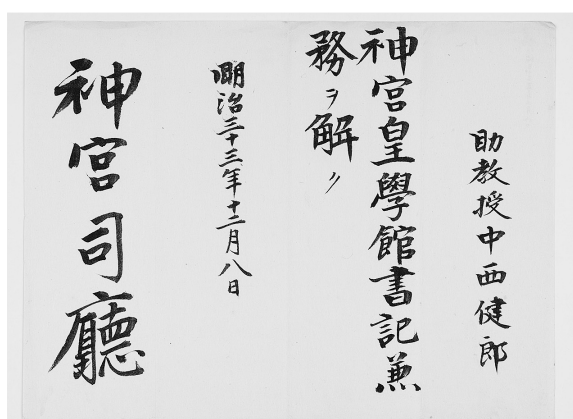 助教授中西健郎
神宮皇學館書記兼
務ヲ解ク
明治三十三年十二月八日
神宮司廳